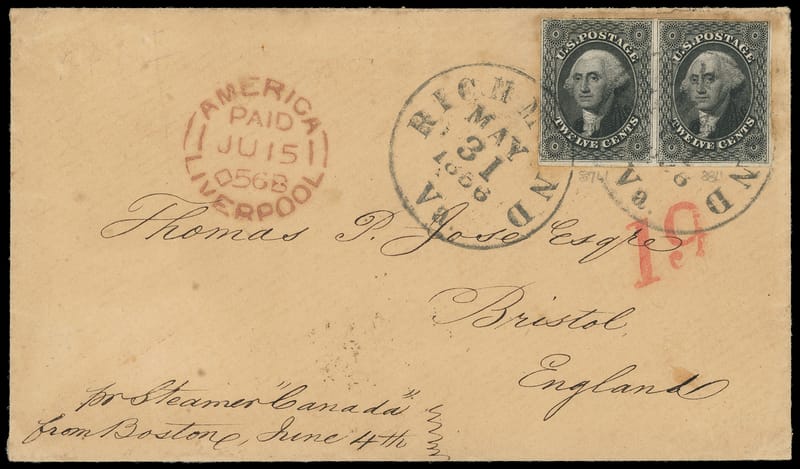 U.S. POSTAGE
TWELVE CENTS
U.S. POSTAGE
TWELVE CENTS
AMERICA
PAID
JU 15
D56B
LIVERPOOL
RICHMOND
MAY
31
1856
VA
ND
Va.
3741
19
Thomas P. Jose Esqre
Bristol,
England
pr Steamer "Canada"
from Boston, June 4th